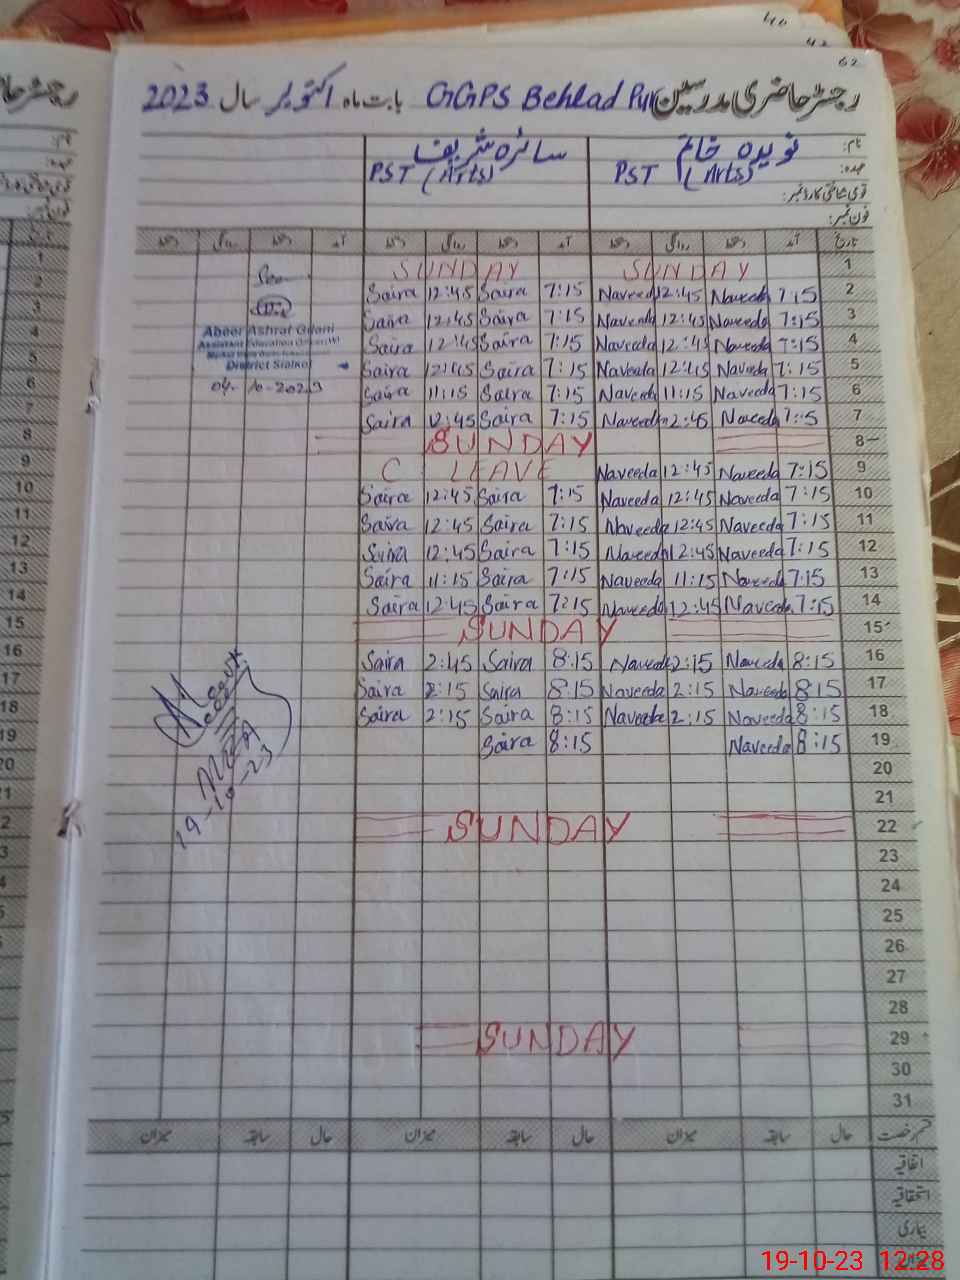 62
رجسٹر حاضری مدرسین GGPS Behlad Pur بابت ماہ اکتوبر سال 2023
نام: نویدہ خانم سائرہ شریف
عہدہ: PST (Arts) PST (Arts)
قومی شناختی کارڈ نمبر:
فون نمبر:
تاریخ آمد دستخط روانگی دستخط آمد دستخط روانگی دستخط آمد دستخط روانگی دستخط
1 SUNDAY SUNDAY
Saira 12:45 Saira 7:15 Naveed 12:45 Naveeda 7:15 2
Saira 12:45 Saira 7:15 Naveeda 12:45 Naveeda 7:15 3
Saira 12:45 Saira 7:15 Naveeda 12:45 Naveeda 7:15 4
Saira 12:45 Saira 7:15 Naveeda 12:45 Naveeda 7:15 5
Saira 11:15 Saira 7:15 Naveeda 11:15 Naveeda 7:15 6
Saira 12:45 Saira 7:15 Naveeda 2:45 Naveeda 7:15 7
SUNDAY 8
C LEAVE Naveeda 12:45 Naveeda 7:15 9
Saira 12:45 Saira 7:15 Naveeda 12:45 Naveeda 7:15 10
Saira 12:45 Saira 7:15 Naveeda 12:45 Naveeda 7:15 11
Saira 12:45 Saira 7:15 Naveeda 12:45 Naveeda 7:15 12
Saira 11:15 Saira 7:15 Naveeda 11:15 Naveeda 7:15 13
Saira 12:45 Saira 7:15 Naveeda 12:45 Naveeda 7:15 14
SUNDAY 15
Saira 2:45 Saira 8:15 Naveeda 2:15 Naveeda 8:15 16
Saira 2:15 Saira 8:15 Naveeda 2:15 Naveeda 8:15 17
Saira 2:15 Saira 8:15 Naveeda 2:15 Naveeda 8:15 18
Saira 8:15 Naveeda 8:15 19
20
21
SUNDAY 22
23
24
25
26
27
28
SUNDAY 29
30
31
Abeer Ashraf Gilani
Assistant Education Officer(W)
District Sialkot
04-10-2023
MEA
19-10-23
قسم رخصت حال سابقہ میزان حال سابقہ میزان حال سابقہ میزان
اتفاقیہ
استحقاقیہ
بیماری
19-10-23 12:28